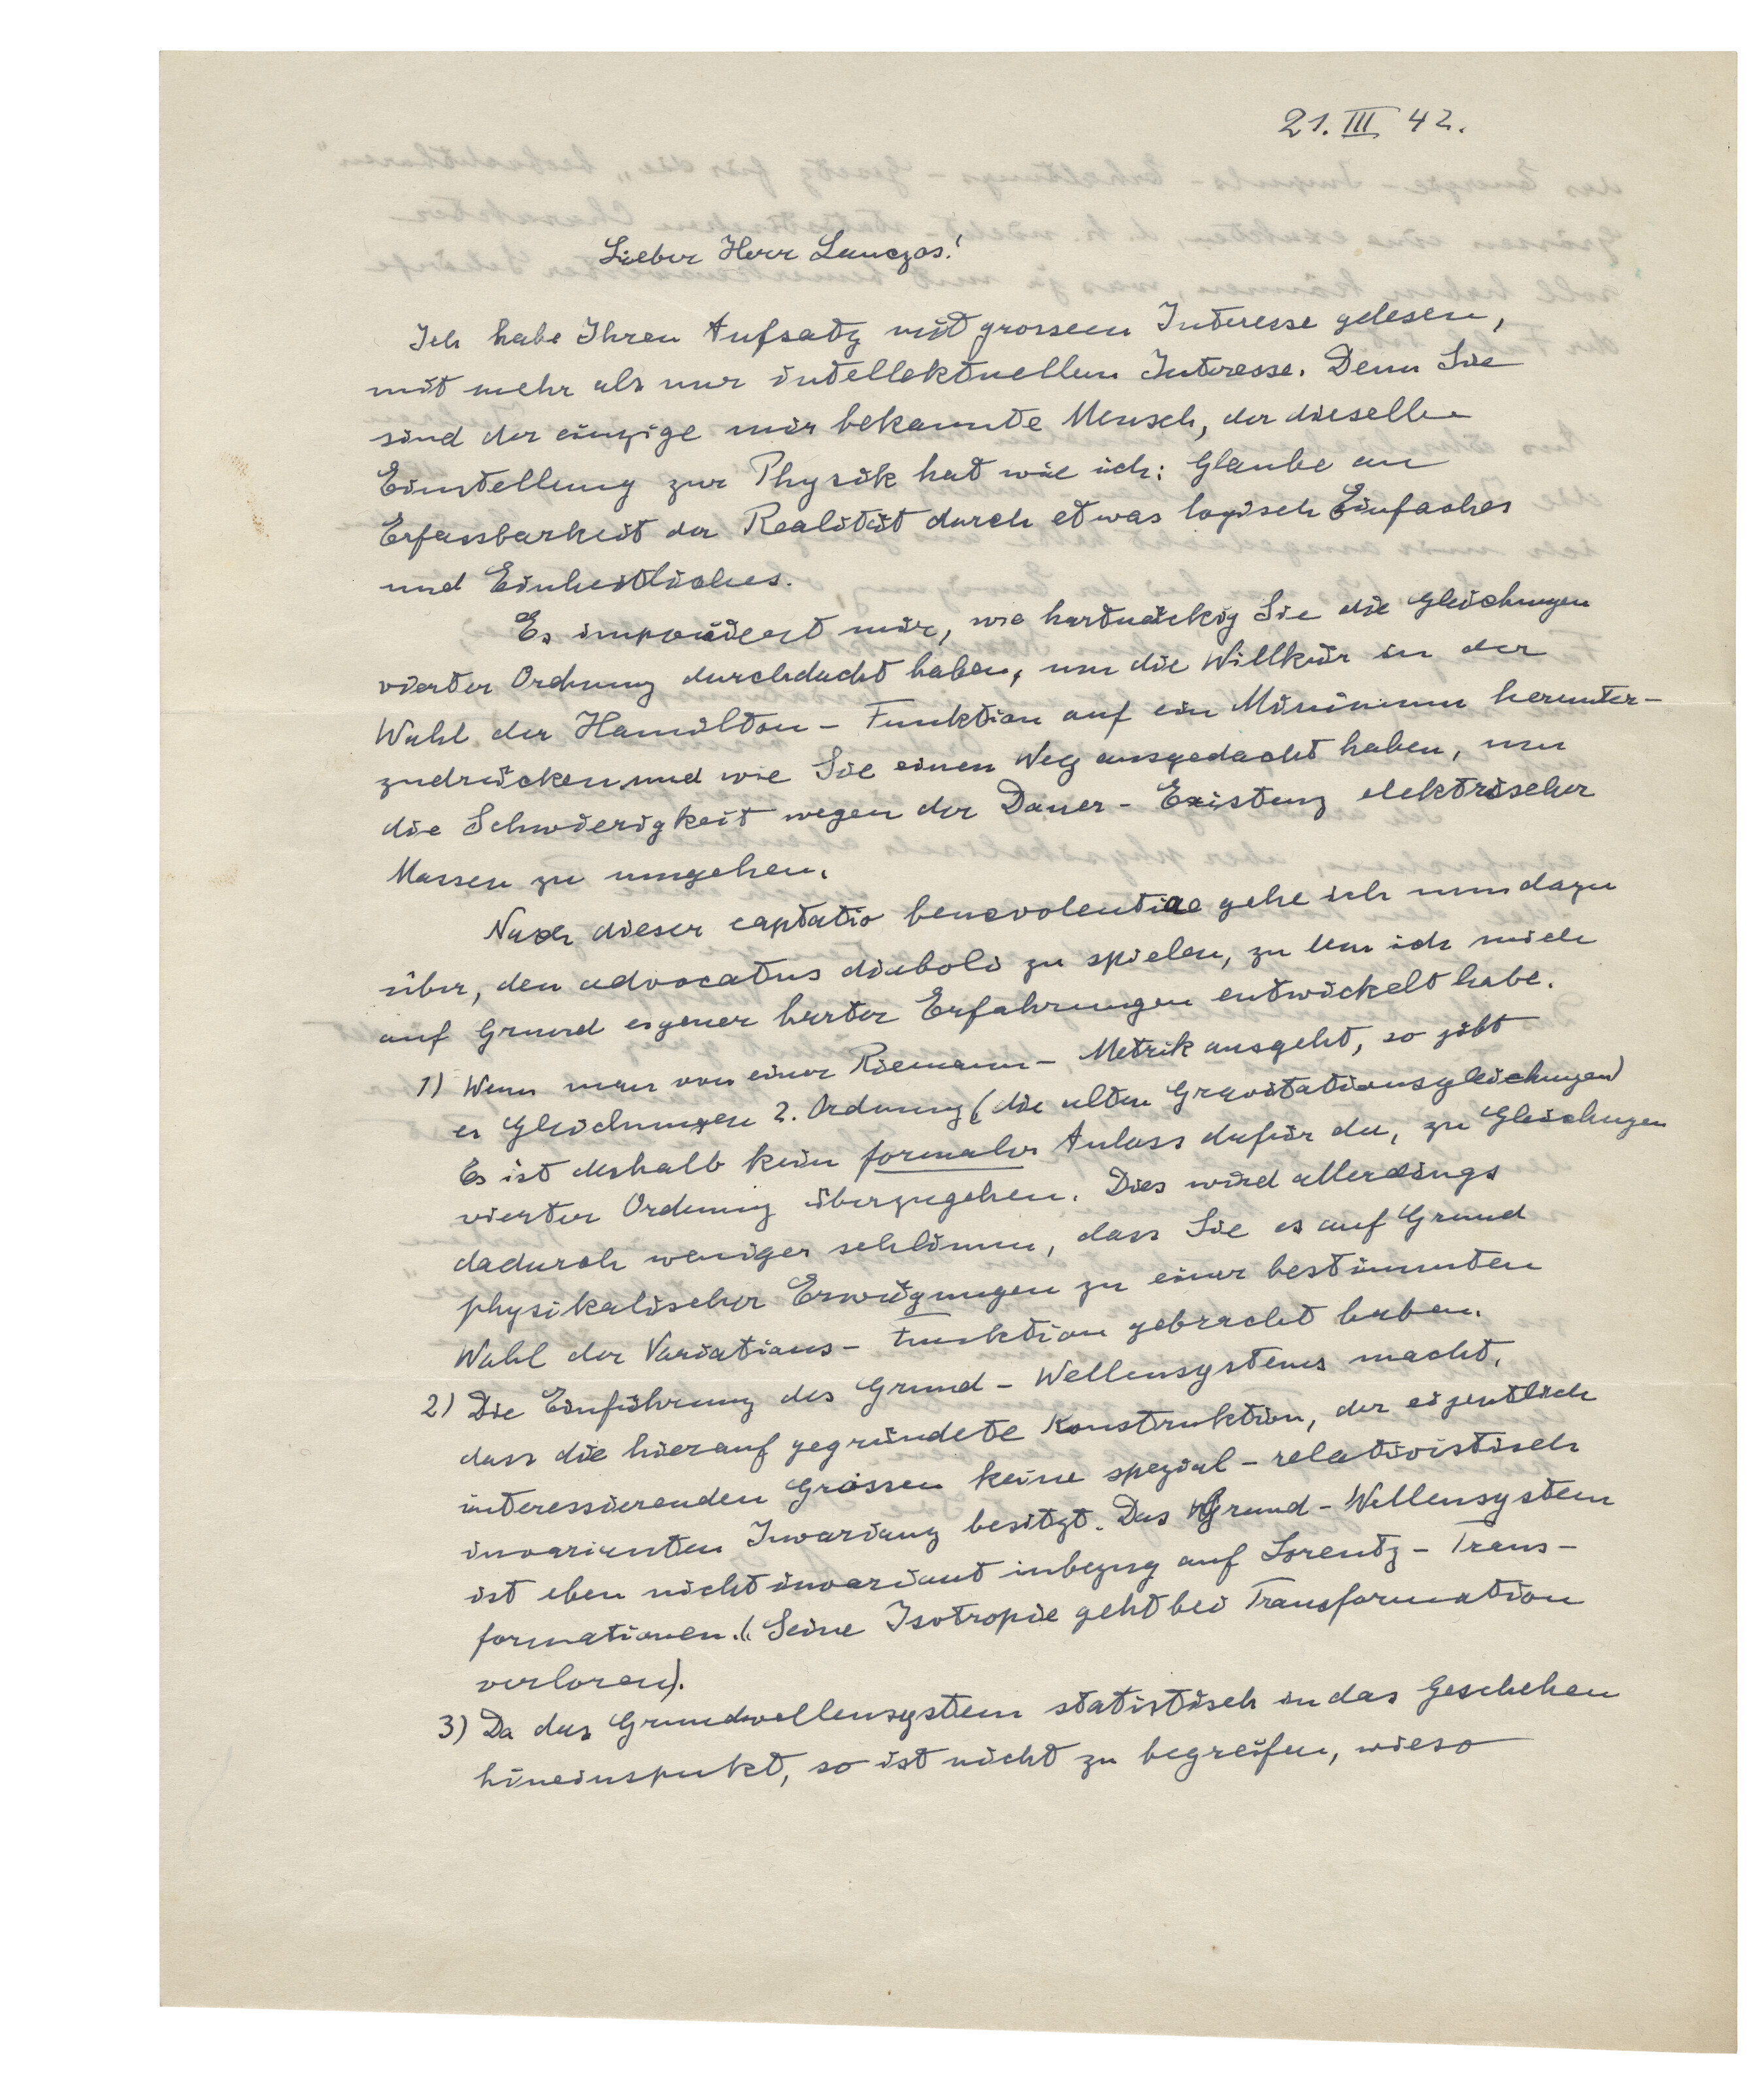 21. III 42.
Lieber Herr Lanczos!
Ich habe Ihren Aufsatz mit grossem Interesse gelesen,
mit mehr als nur intellektuellem Interesse. Denn Sie
sind der einzige mir bekannte Mensch, der dieselbe
Einstellung zur Physik hat wie ich: Glaube an
Erfassbarkeit der Realität durch etwas logisch Einfaches
und Einheitliches.
Es imponiert mir, wie hartnäckig Sie die Gleichungen
vierter Ordnung durchdacht haben, um die Willkür in der
Wahl der Hamilton-Funktion auf ein Minimum herunter-
zudrücken und wie Sie einen Weg ausgedacht haben, um
die Schwierigkeit wegen der Dauer-Existenz elektrischer
Massen zu umgehen.
Nach dieser captatio benevolentiae gehe ich nun dazu
über, den advocatus diaboli zu spielen, zu dem ich mich
auf Grund eigener harter Erfahrungen entwickelt habe.
1) Wenn man von einer Riemann-Metrik ausgeht, so gibt
es Gleichungen 2. Ordnung (die alten Gravitationsgleichungen)
Es ist deshalb kein formaler Anlass dafür da, zu Gleichungen
vierter Ordnung überzugehen. Dies wird allerdings
dadurch weniger schlimm, dass Sie es auf Grund
physikalischer Erwägungen zu einer bestimmten
Wahl der Variations-Funktion gebracht haben.
2) Die Einführung des Grund-Wellensystems macht,
dass die hierauf gegründete Konstruktion, der eigentlich
interessierenden Grössen keine spezial-relativistisch
invarianten Invarianz besitzt. Das Grund-Wellensystem
ist eben nicht invariant inbezug auf Lorentz-Trans-
formationen. (Seine Isotropie geht bei Transformation
verloren).
3) Da das Grundwellensystem statistisch in das Geschehen
hineinspukt, so ist nicht zu begreifen, wieso